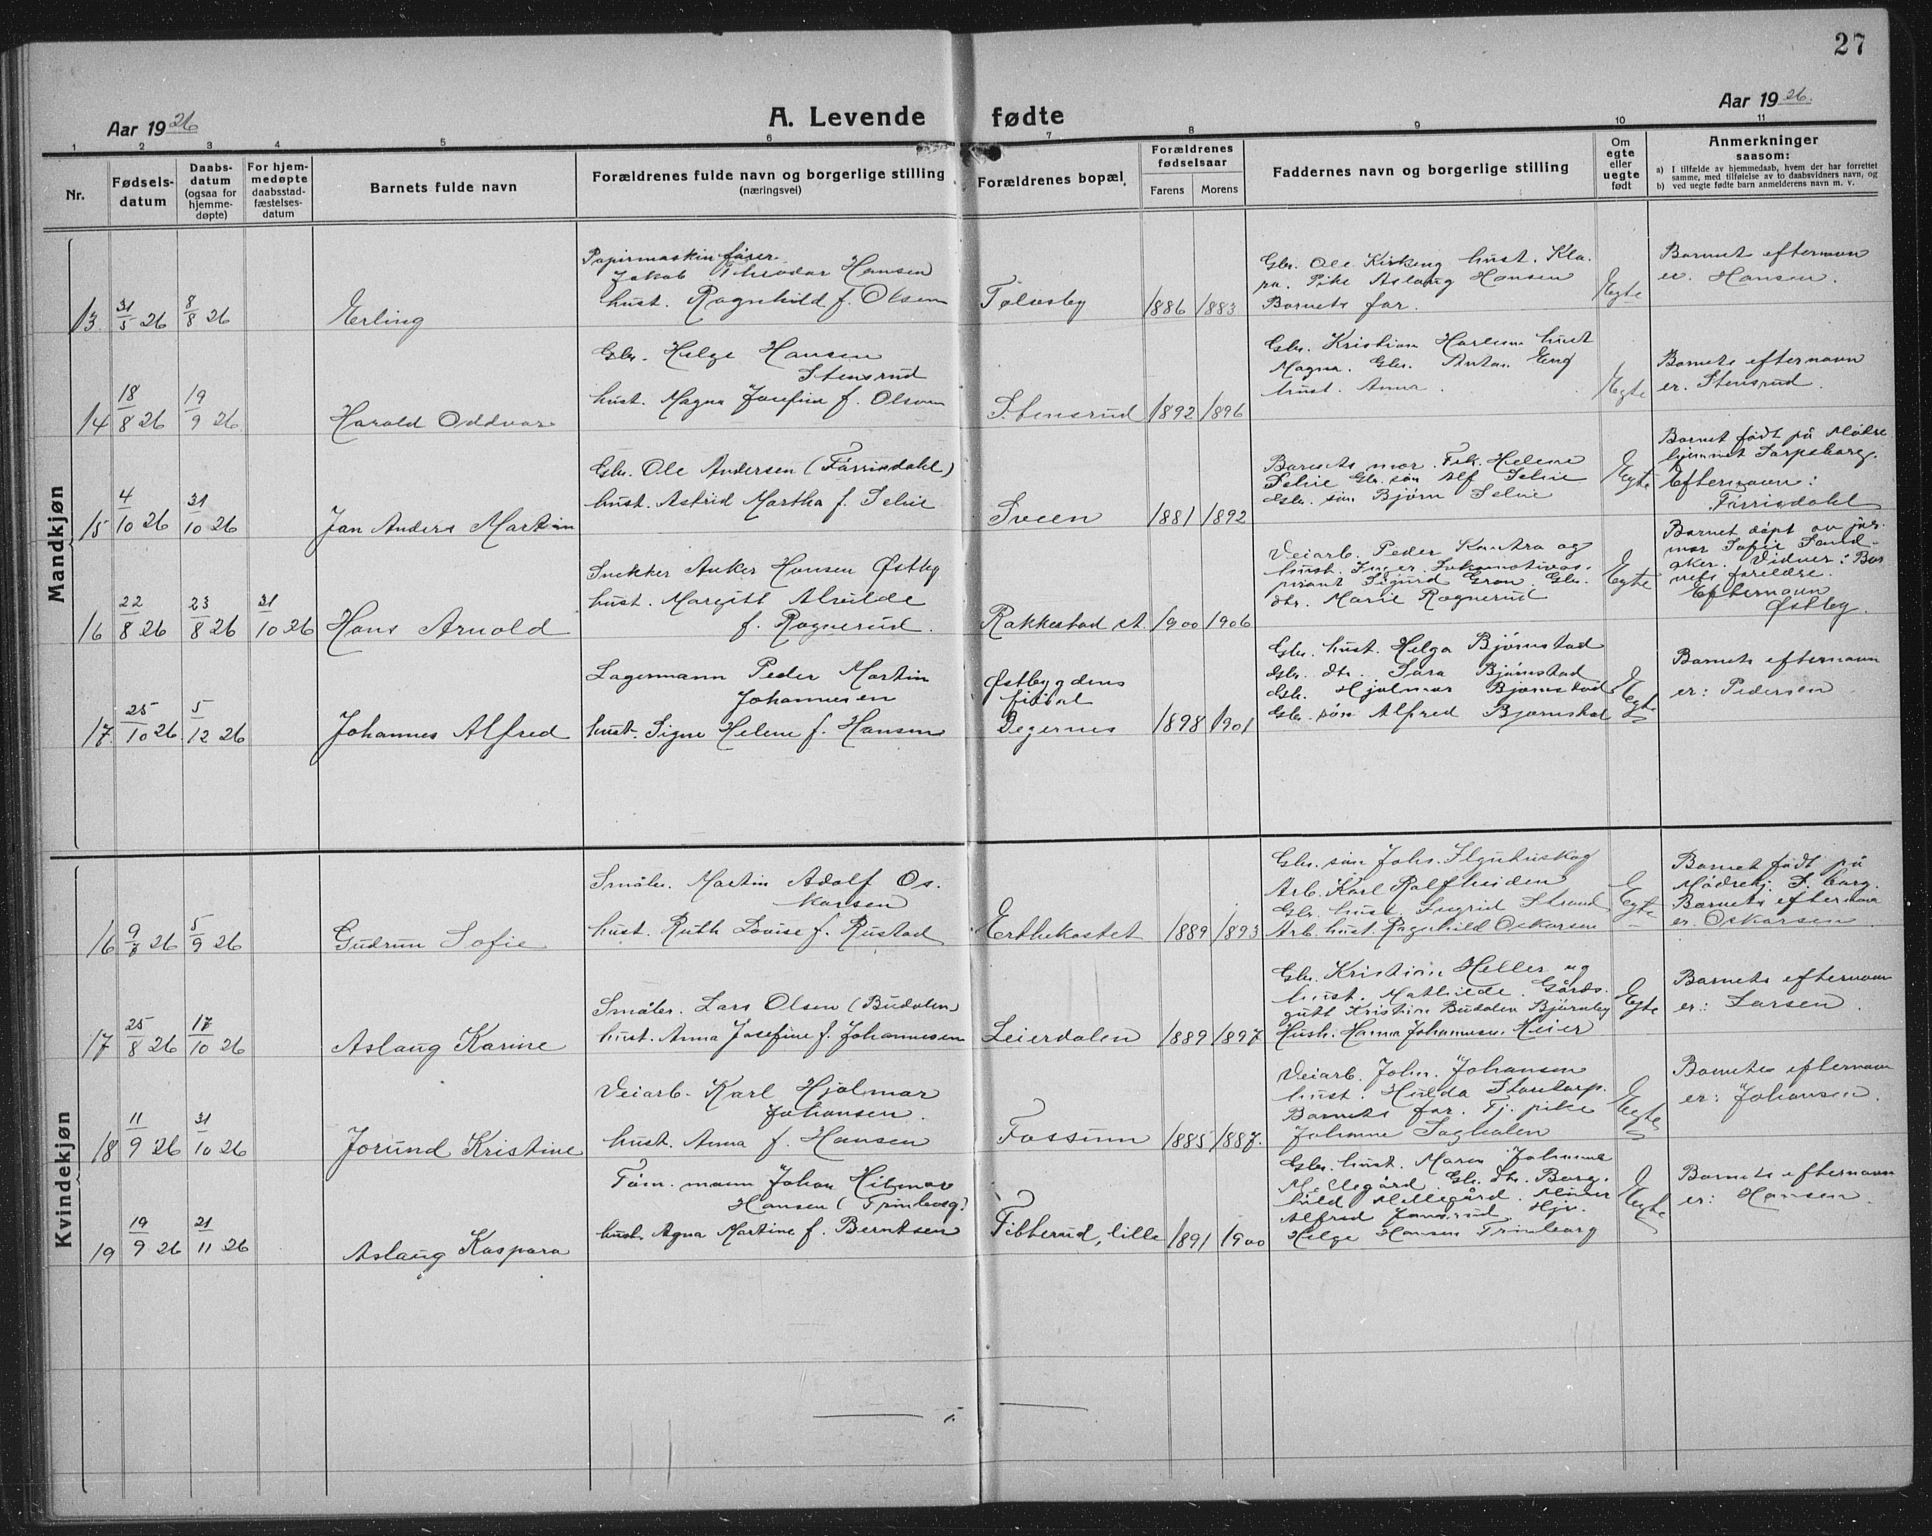 27
Aar 1926
A. Levende fødte
Aar 1926.
1 2 3 4 5 6 7 8 9 10 11
Nr.
Fødsels-
datum
Daabs-
datum
(ogsaa for
hjemme-
døpte)
For hjem-
medøpte
daabsstad-
fæstelses-
datum
Barnets fulde navn
Forældrenes fulde navn og borgerlige stilling
(næringsvei)
Forældrenes bopæl
Forældrenes
fødselsaar
Farens Morens
Faddernes navn og borgerlige stilling
Om
egte
eller
uegte
født
Anmerkninger
saasom:
a) I tilfælde av hjemmedaab, hvem der har forrettet
samme, med tilføielse av to daabsvidners navn, og
b) ved uegte fødte barn anmelderens navn m. v.
Mandkjøn
13 31/5 26 8/8 26
Erling
Papirmaskinfører
Jakob Theodor Hansen
hust. Ragnhild f. Olsen
1886 1883
Gbr. Ole Kirkeng hust. Kla-
ra. Pike Aslaug Hansen
Barnets far.
Egte
Barnets efternavn
er Hansen.
14 18/8 26 19/9 26
Harald Oddvar
Gbr. Helge Hansen
Stensrud
hust. Magna Josefine f. Olsen
Stensrud 1892 1896
Gbr. Kristian Harlem hust
Magna. Gbr. Anton Eng
hust. Anna.
Egte
Barnets efternavn
er. Stensrud.
15 4/10 26 31/10 26
Jan Anders Martin
Gbr. Ole Andersen (Fårrisdahl)
hust. Astrid Martha f. Selvie
Sveen 1881 1892
Barnets mor. Frk. Helene
Selvie Gbr. søn Alf Selvie
Gbr. søn Bjørn Selvie
Egte
Barnet født på Mødre-
hjemmet Sarpsborg.
Efternavn:
Fårrisdahl
16 22/8 26 23/8 26 31/10 26
Hans Arnold
Snekker Anker Hansen Østby
hust. Margitt Alvilde
f. Ragnerud.
Rakkestad st. 1900 1906
Veiarb. Peder Kantra og
hust. Inger. Lokomotivas-
pirant Sigurd Grøn. Gbr.
dtr. Marie Ragnerud
Egte
Barnet døpt av jor-
mor Sofie Sand-
aker. Vidner: Bar-
nets foreldre.
Efternavn
Østby.
17. 25/10 26 5/12 26
Johannes Alfred
Lagermann Peder Martin
Johannesen
hust. Signe Helene f. Hansen
Østbygdens
filial
Degernes 1898 1901
Gbr. hust. Helga Bjørnstad
Gbr. dtr. Sara Bjørnstad
Gbr. Hjalmar Bjørnstad
Gbr. søn Alfred Bjørnstad
Egte
Barnets efternavn
er: Pedersen
Kvindekjøn
16 9/8 26 5/9 26
Gudrun Sofie
Småbr. Martin Adolf Os-
karsen
hust. Ruth Lovise f. Rustad
Erthekastet 1889 1893
Gbr. søn Johs.
Arb. Karl Ralfheiden
Gbr. hust. Ingrid Strand
Arb. hust. Ragnhild Oskarsen
Egte
Barnet født på
Mødrehj. S. borg.
Barnets efternavn
er. Oskarsen
17 25/8 26 17/10 26
Aslaug Karine
Småbr. Lars Olsen (Budalen)
hust. Anna Josefine f. Johannesen
Leierdalen 1889 1897
Gbr. Kristian Heller og
hust. Mathilde. Gårds-
gutt Kristian Budalen Bjørneby
Hush. Hanna Johannesen Heier
Egte
Barnets efternavn
er: Larsen.
18 11/9 26 31/10 26
Jorund Kristine
Veiarb. Karl Hjalmar
Johansen.
hust. Anna f. Hansen
Fossum 1885 1887.
Veiarb. John. Johansen
hust. Hulda Storetorp.
Barnets far. Tj. pike
Johanne Saghalen
Egte
Barnets efternavn
er: Johansen.
19 19/9 26 21/11 26
Aslaug Kaspara
Tøm. mann Johan Hilmar
Hansen (Trimborg)
hust. Agna Martine f. Berntsen
Tibberud, lille 1891 1900
Gbr. hust. Maren Johanne
Mellegård. Gbr. dtr. Borg-
hild Mellegård. Murer
Alfred Jansrud. Hjv.
Helge Hansen Trimborg
Egte
Barnets efternavn
er: Hansen.